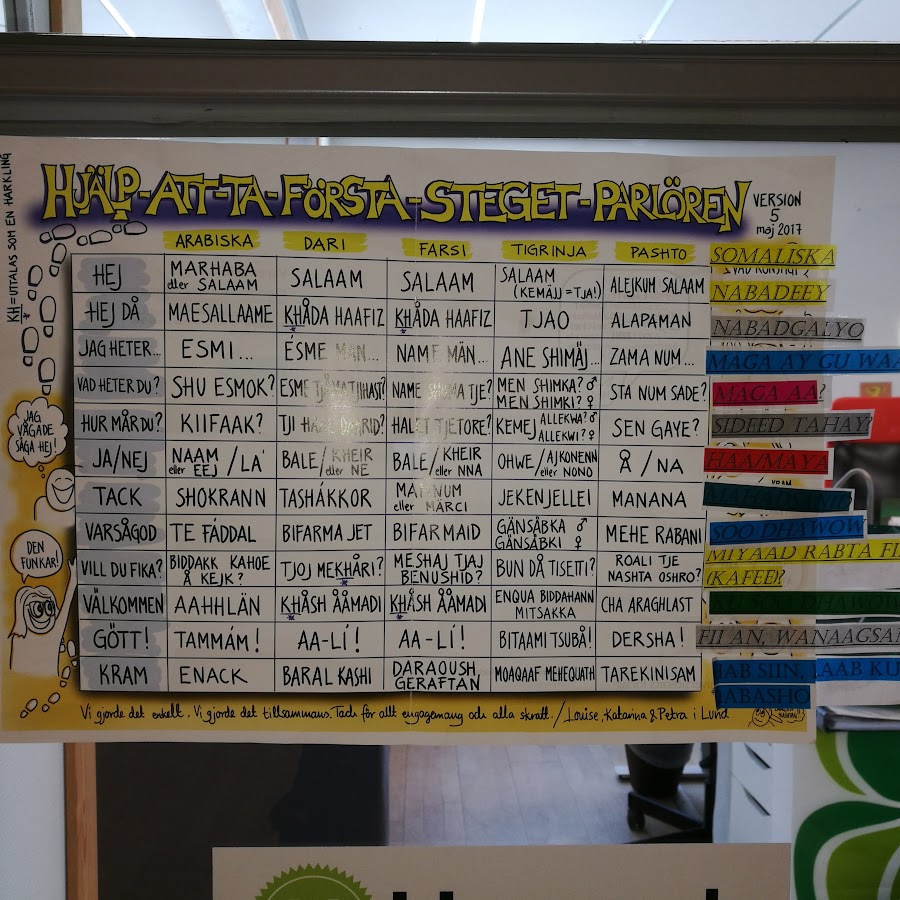 HJÄLP-ATT-TA-FÖRSTA-STEGET-PARLÖREN
VERSION
5
maj 2017
KH=UTTALAS SOM EN HARKLING
ARABISKA DARI FARSI TIGRINJA PASHTO SOMALISKA
HEJ MARHABA eller SALAAM SALAAM SALAAM SALAAM (KEMÄJJ=TJA!) ALEJKUM SALAAM NABADEEY
HEJ DÅ MAESALLAAME KHÅDA HAAFIZ KHÅDA HAAFIZ TJAO ALAPAMAN NABADGALYO
JAG HETER... ESMI... ÉSME MAN... NAME MÄN... ANE SHIMÄJ... ZAMA NUM... MAGA AY GU WAA
VAD HETER DU? SHU ESMOK? ESME NAME TJE? MEN SHIMKA? ♂ MEN SHIMKI? ♀ STA NUM SADE? MAGA AA?
HUR MÅR DU? KIIFAAK? TJI HALET TJETORE? KEMEJ ALLEKWA? ♂ ALLEKWI? ♀ SEN GAYE? SIDEED TAHAY
JA/NEJ NAAM eller EEJ /LA' BALE/KHEIR eller NE BALE/KHEIR eller NNA OHWE/AJKONENN eller NONO Å/NA HAA/MAYA
TACK SHOKRANN TASHÁKKOR eller MÄRCI JEKENJELLEI MANANA
VARSÅGOD TE FÁDDAL BIFARMA JET BIFARMAID GÄNSÅBKA ♂ GÄNSÅBKI ♀ MEHE RABANI SOO DHAWOW
VILL DU FIKA? BIDDAKK KAHOE Å KEJK? TJOJ MEKHÅRI? MESHAJ TJAJ BENUSHID? BUN DÅ TISETTI? ROALI TJE NASHTA OSHRO? MIYAAD RABTA KAFEE?
VÄLKOMMEN AAHHLÄN KHÅSH ÅÅMADI KHÅSH ÅÅMADI ENQUA BIDDAHANN MITSAKKA CHA ARAGHLAST DHAWOW
GÖTT! TAMMÁM! AA-LÍ! AA-LÍ! BITAAMI TSUBÅ! DERSHA! FIIAN, WANAAGSAN
KRAM ENACK BARAL KASHI DARAOUSH GERAFTAN MOAQAAF MEHEQUATH TAREKINISAM LAB SIIN, LAAB KU
HABASHO
JAG VÅGADE SÄGA HEJ!
DEN FUNKAR!
Vi gjorde det enkelt. Vi gjorde det tillsammans. Tack för allt engagemang och alla skratt. / Louise, Katarina & Petra i Lund